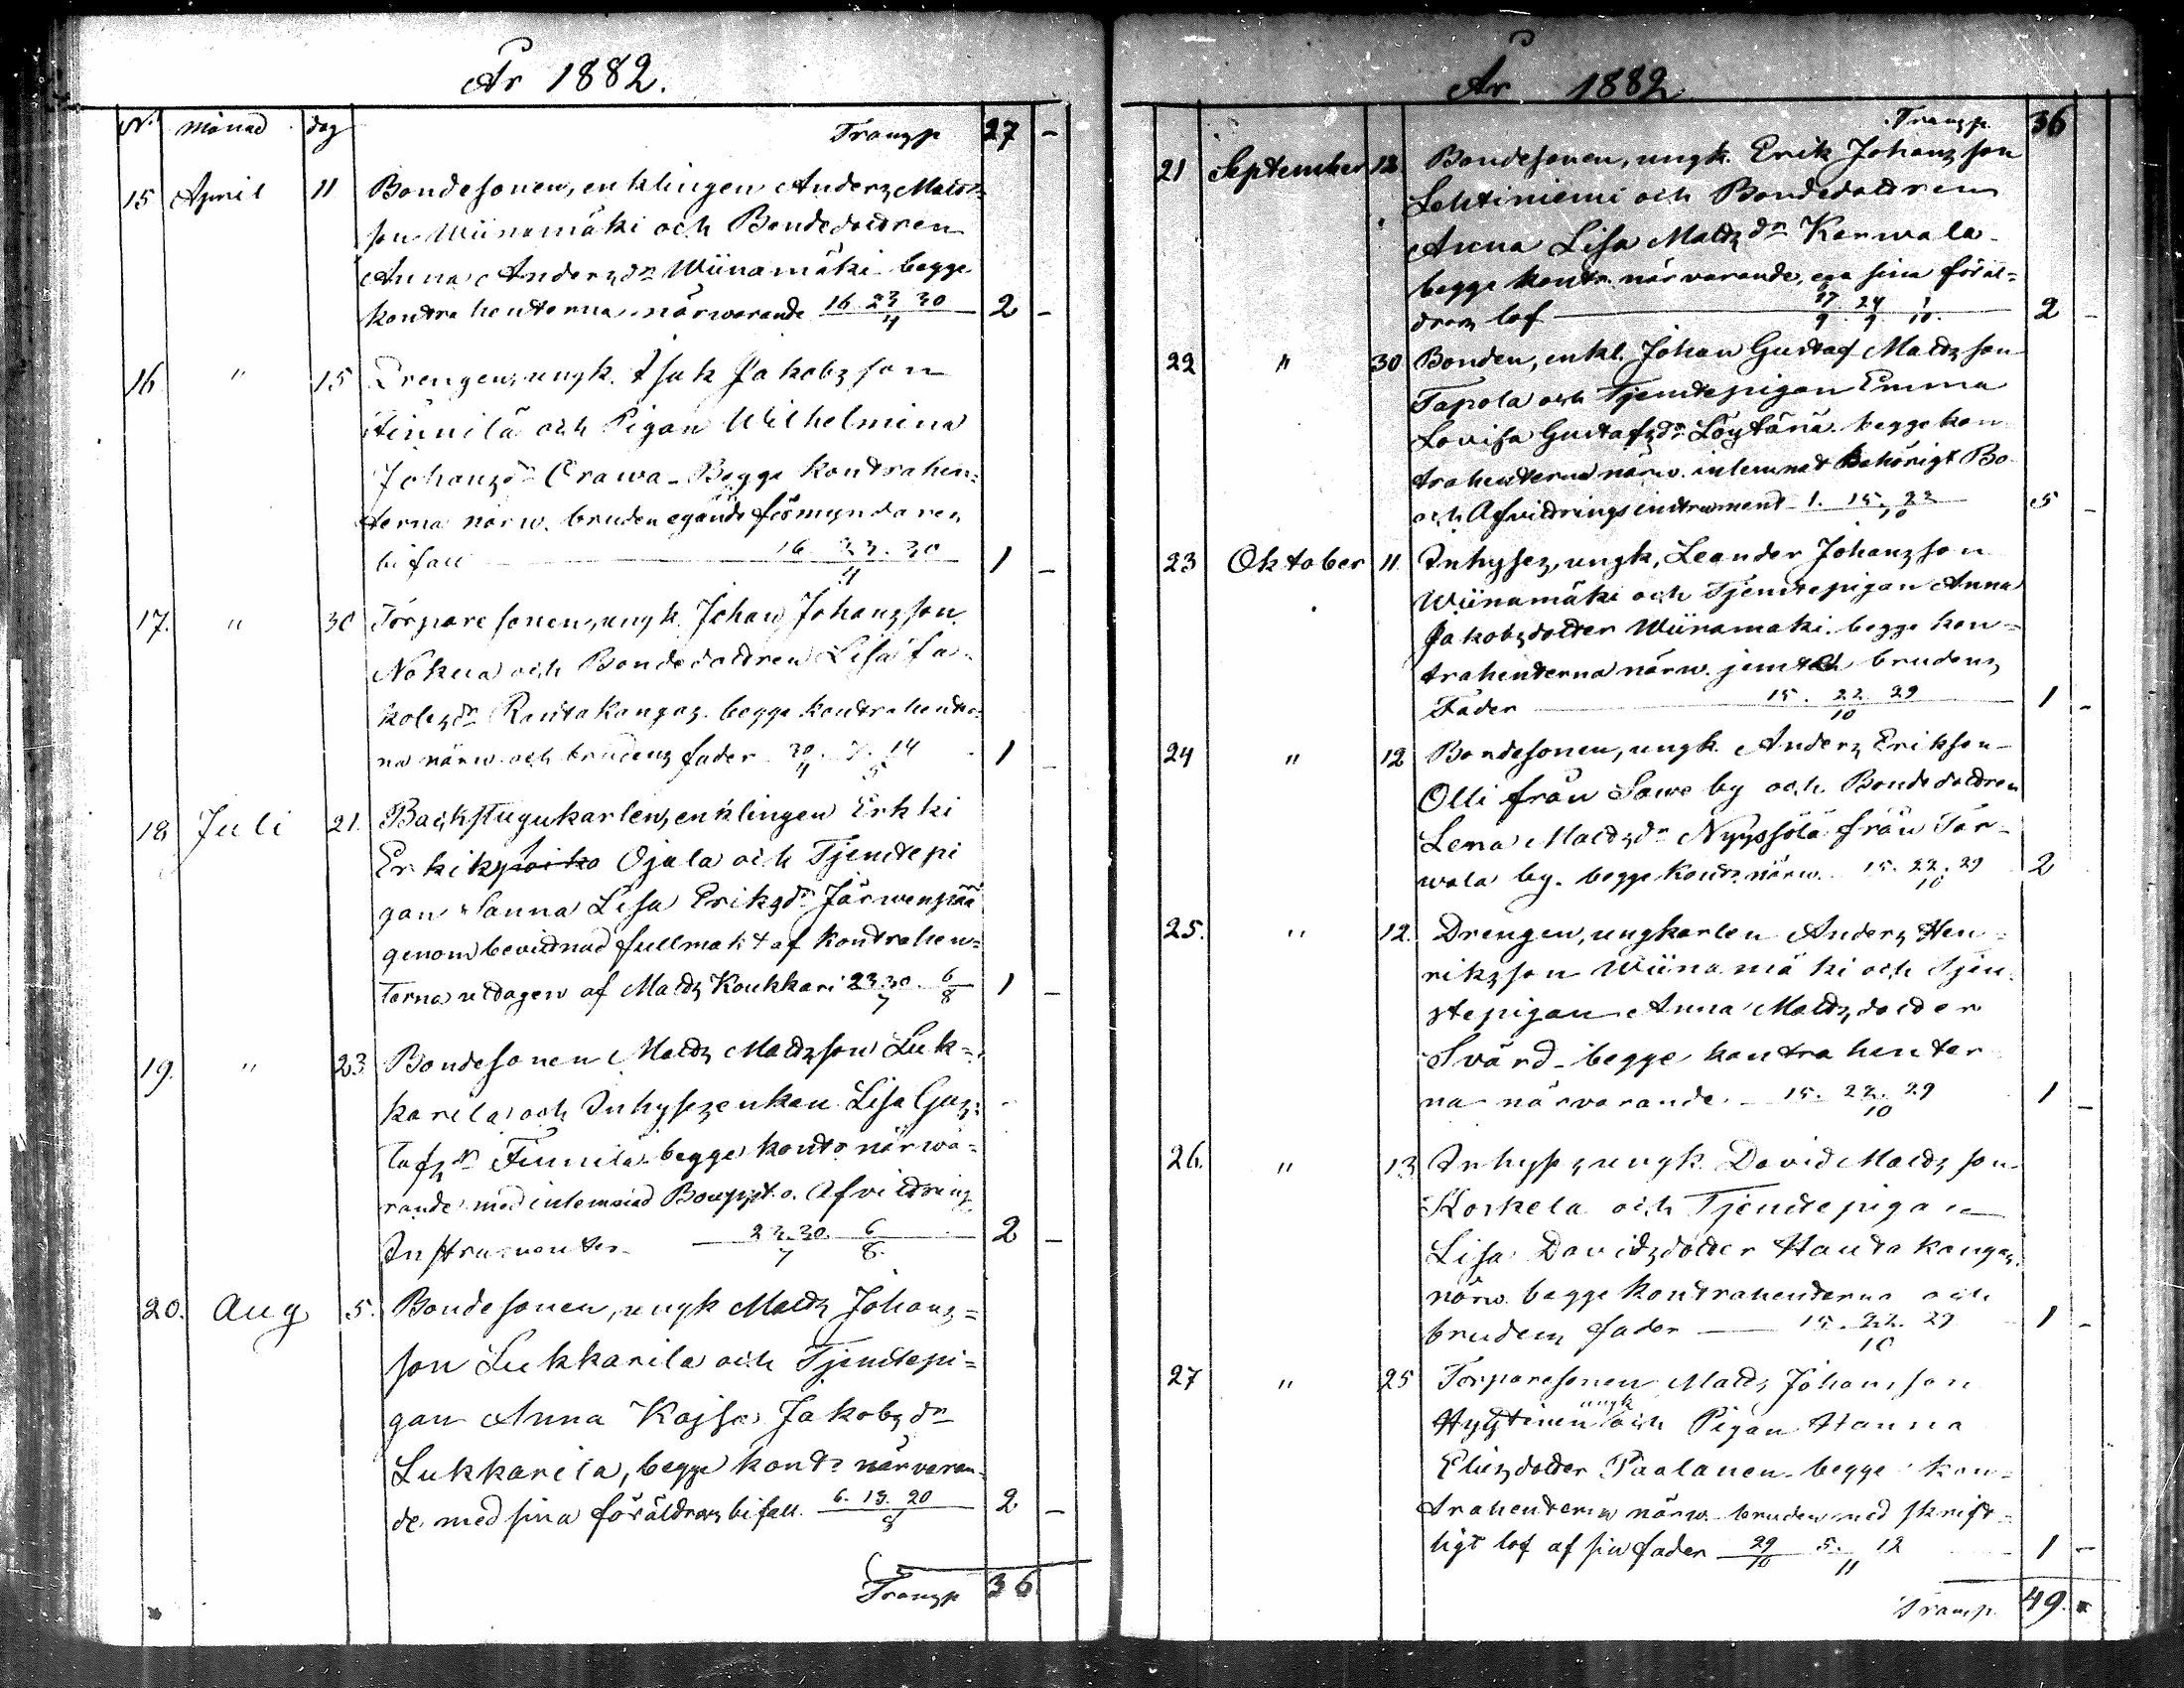 År 1882.
Nr Månad dag Transp 27 -
15 April 11 Bondesonen, enklingen Anders Matts
son Wiinamäki och Bondedottren
Anna Andersdr Wiinamäki begge
kontrahenterna närwarande 16. 23. 30/4 2 -
16 " 15 Drengen, ungk. Isak Jakobsson
Finnilä och Pigan Wilhelmina
Johansdr Orawa - Begge kontrahen=
terna närw. bruden egande förmyndares
bifall 16. 23. 30/4 1 -
17. " 30 Torparesonen, ungk. Johan Johansson
Nokua och Bondedottren Lisa Ja=
kobsdr Rautakangas. begge kontrahenter=
na närw. och brudens fader 30/4. 7. 14/5 1 -
18 Juli 21. Backstugukarlen, enklingen Erkki
Erkiks Ojala och Tjenstepi
gan Sanna Lisa Eriksdr Järwenpää
genom bevittnad fullmakt af kontrahen=
terna uttagen af Matts Koukkari 23. 30/7. 6/8 1 -
19. " 23 Bondesonen Matts Mattsson Luk=
karila och Inhyses enkan Lisa Gus=
tafsdr Finnilä begge kontr närwa=
rande med inlemnad Bouppt. o. Afvittrings
Instrumenter 23. 30/7. 6/8 2 -
20. Aug 5. Bondesonen, ungk Matts Johans=
son Lukkarila och Tjenstepi=
gan Anna Kajsa Jakobsdr
Lukkarila, begge kontr närvaran=
de med sina föräldrars bifall. 6. 13. 20/8 2 -
Transp 36
År 1882
Transp. 36
21 September 12 Bondesonen, ungk. Erik Johansson
Lehtiniemi och Bondedottren
Anna Lisa Mattsdr Karwala
begge kontr. närvarande, ega sina föräl=
drars lof 17/9. 24/9. 1/10. 2 -
22 " 30 Bonden, enkl. Johan Gustaf Mattsson
Tapola och Tjenstepigan Emma
Lovisa Gustafsdr Löytänä. begge kon
trahenterna närw. inlemnat Behörigt Bo
och Afvittringsinstrument 1. 15. 22/10 5 -
23 Oktober 11. Inhyses, ungk, Leander Johansson
Wiinamäki och Tjenstepigan Anna
Jakobsdotter Wiinamaki. begge kon=
trahenterna närw. jemte brudens
Fader 15. 22. 29/10 1 -
24 " 12 Bondesonen, ungk. Anders Erikson
Olli från Sawe by och Bondedottren
Lena Mattsdr Nyyssölä från Kar=
wala by. begge kontr. närw. 15. 22. 29/10 2
25. " 12. Drengen, ungkarlen Anders Hen=
riksson Wiinamäki och Tjen
stepigan Anna Mattsdotter
Svärd - begge kontrahenter
na närvarande. 15. 22. 29/10 1 -
26. " 13 Inhyses ungk. David Mattsson
Korkela och Tjenstepigan
Lisa Davidsdotter Hautakangas.
närw. begge kontrahenterna och
brudens fader 15. 22. 29/10 1 -
27 " 25 Torparesonen Matts Johansson
Hyytinen ungk och Pigan Hanna
Eliesdotter Paalanen - begge kon=
trahenterna närw. bruden med skrift=
ligt lof af sin fader 29/10 5. 12/11 1 -
Transp. 49. -